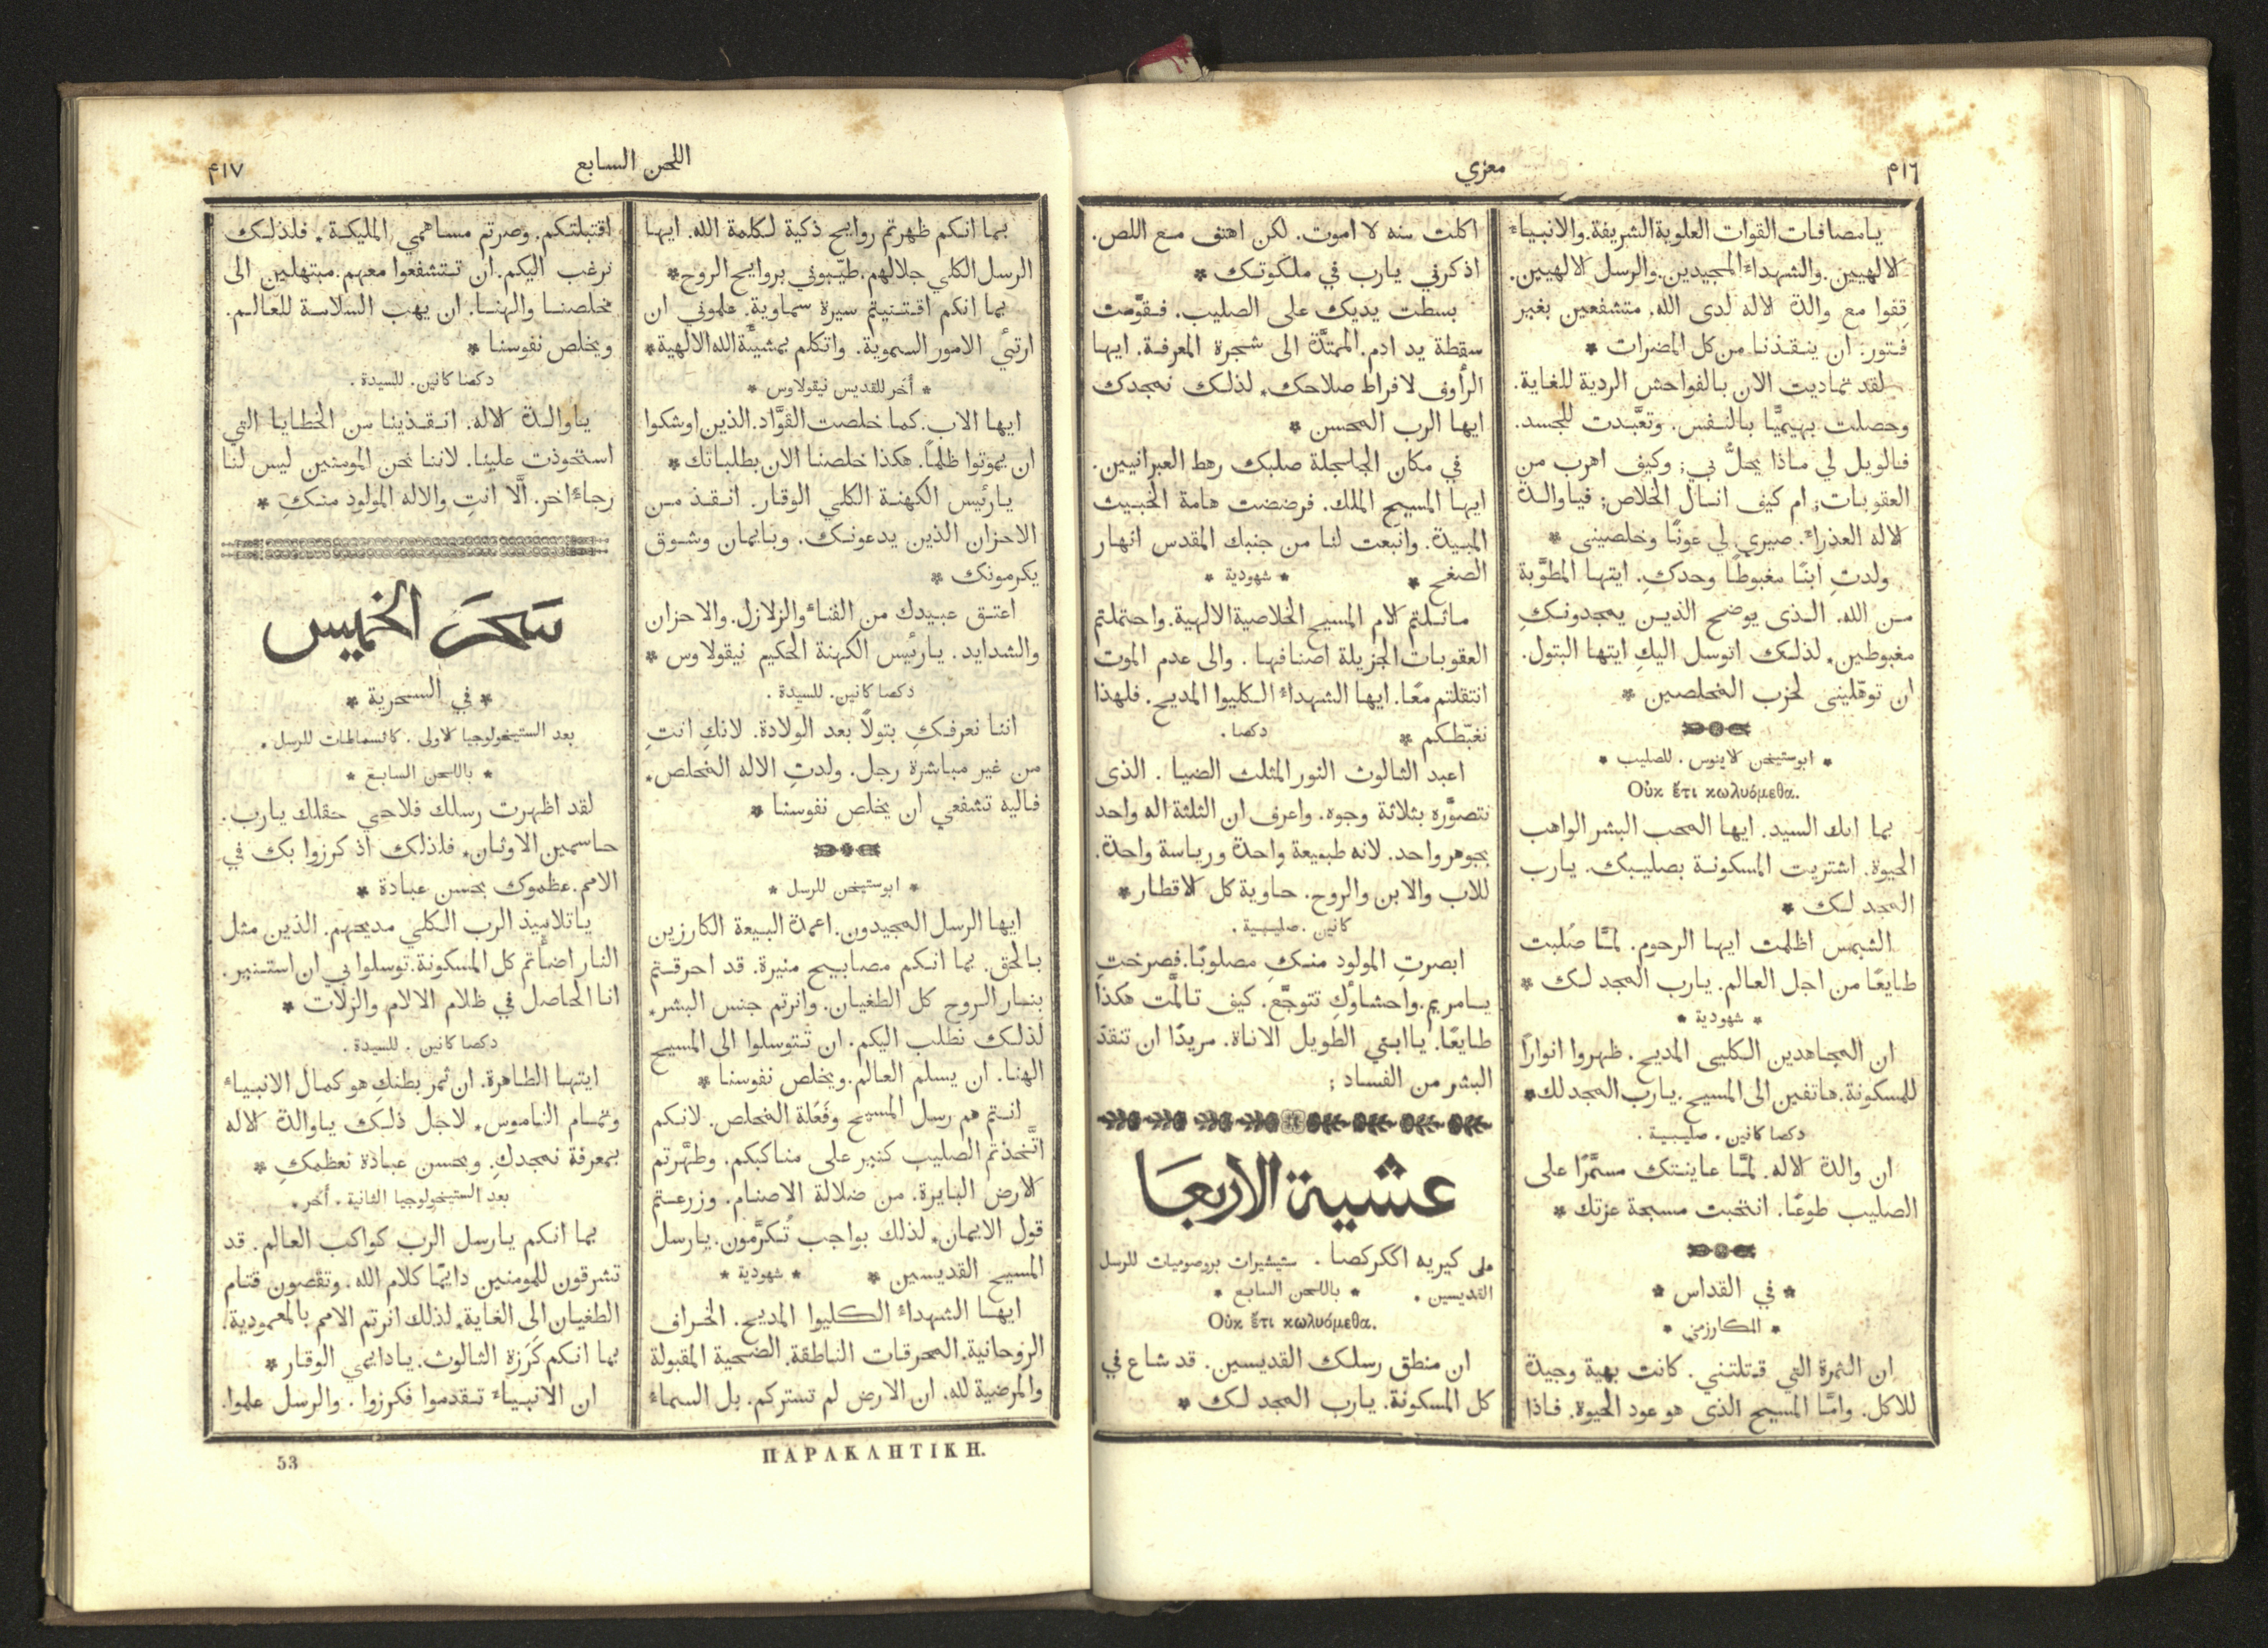 ٤١٦
معزي
يامصافات القوات العلوية الشريفة. والانبياء
الالهيين. والشهداء المجيدين. والرسل الالهيين.
قِفوا مع والدة الاله لدى الله. متشفعين بغير
فتور. ان ينقذنا من كل المضرات *
لقد تماديت الان بالفواحش الردية للغاية.
وحصلت بهيميًّا بالنفس. وتعبَّدت للجسد.
فالويل لي ماذا يحلُّ بي; وكيف اهرب من
العقوبات; ام كيف انال الخلاص; فياوالدة
الاله العذراء. صيري لي عونًا وخلصيني *
ولدتِ ابنًا مغبوطًا وحدكِ. ايتها المطوَّبة
من الله. الذى يوضح الذين يمجدونكِ
مغبوطين. لذلك اتوسل اليكِ ايتها البتول.
ان توهّليني لحزب المخلصين *
* ابوستيخن لاينوس. للصليب *
Οὐκ ἔτι κωλυόμεθα.
بما انك السيد. ايها المحب البشر الواهب
الحيوة. اشتريت المسكونة بصليبك. يارب
المجد لك *
الشمس اظلمت ايها الرحوم. لمَّا صُلبت
طايعًا من اجل العالم. يارب المجد لك *
* شهودية *
ان المجاهدين الكليى المديح. ظهروا انوارًا
للمسكونة. هاتفين الى المسيح. يارب المجد لك *
دكصا كانين. صليبية.
ان والدة الاله. لمَّا عاينتك مسمَّرًا على
الصليب طوعًا. انتحبت مسبحة عزتك *
* في القداس *
* المكارزمي *
ان الثمرة التي قتلتني. كانت بهية وجيدة
للاكل. وامَّا المسيح الذى هو عود الحيوة. فاذا
اكلت منه لا اموت. لكن اهتف مع اللص.
اذكرني يارب في ملكوتك *
بسطت يديك على الصليب. فقوَّمت
سقطة يد ادم. الممتدَّة الى شجرة المعرفة. ايها
الرأوف لافراط صلاحك. لذلك نمجدك
ايها الرب المحسن *
في مكان الجلجلة صلبك رهط العبرانيين.
ايها المسيح الملك. فرضضت هامة الخبيث
المبيدة. وانبعت لنا من جنبك المقدس انهار
الصفح *
* شهودية *
ماثلتم الام المسيح الخلاصية الالهية. واحتملتم
العقوبات الجزيلة اصنافها. والى عدم الموت
انتقلتم معًا. ايها الشهداء الكليوا المديح. فلهذا
نغبّطكم *
دكصا.
اعبد الثالوث النور المثلث الضيا. الذى
نتصوَّره بثلاثة وجوه. واعرف ان الثلثة اله واحد
بجوهر واحد. لانه طبيعة واحدة ورياسة واحدة.
للاب والابن والروح. حاوية كل الاقطار *
كانين. صليبية.
ابصرتِ المولود منكِ مصلوبًا. فصرختِ
يامريم. واحشاؤكِ تتوجَّع. كيف تالَّمت هكذا
طايعًا. ياابني الطويل الاناة. مريدًا ان تنقذ
البشر من الفساد ;
عشية الاربعَا
على كيريه اككركصا. ستيشيرات بروصوميات للرسل
القديسين. * باللحن السابع *
Οὐκ ἔτι κωλυόμεθα.
ان منطق رسلك القديسين. قد شاع في
كل المسكونة. يارب المجد لك *
اللحن السابع
٤١٧
بما انكم ظهرتم روايح ذكية لكلمة الله. ايها
الرسل الكلي جلالهم. طيّبوني بروايح الروح *
بما انكم اقتنيتم سيرة سماوية. علموني ان
ارتئي الامور السموية. واتكلم بمشيَّة الله الالهية *
* أخر للقديس نيقولاوس *
ايها الاب. كما خلصت القوَّاد. الذين اوشكوا
ان يموتوا ظلمًا. هكذا خلصنا الان بطلباتك *
يارئيس الكهنة الكلي الوقار. انقذ من
الاحزان الذين يدعونك. وبايمان وشوق
يكرمونك *
اعتق عبيدك من الفناء والزلازل. والاحزان
والشدايد. يارئيس الكهنة الحكيم نيقولاوس *
دكصا كانين. للسيدة.
اننا نعرفكِ بتولاً بعد الولادة. لانكِ انتِ
من غير مباشرة رجل. ولدتِ الاله المخلص.
فاليه تشفعي ان يخلص نفوسنا *
* ابوستيخن للرسل *
ايها الرسل المجيدون. اعمدة البيعة الكارزين
بالحق. بما انكم مصابيح منيرة. قد احرقتم
بنار الروح كل الطغيان. وانرتم جنس البشر.
لذلك نطلب اليكم. ان تتوسلوا الى المسيح
الهنا. ان يسلم العالم. ويخلص نفوسنا *
انتم هم رسل المسيح وفَعَلة المخلص. لانكم
اتَّخذتم الصليب كنير على مناكبكم. وطهَّرتم
الارض البايرة. من ضلالة الاصنام. وزرعتم
قول الايمان. لذلك بواجب تُكرَّمون. يارسل
المسيح القديسين *
* شهودية *
ايها الشهداء الكليوا المديح. الخراف
الروحانية. المحرقات الناطقة. الضحية المقبولة
والمرضية لله. ان الارض لم تستركم. بل السماء
اقتبلتكم. وصرتم مساهمي المليكة. فلذلك
نرغب اليكم. ان تتشفعوا معهم. مبتهلين الى
مخلصنا والهنا. ان يهب السلامة للعالم.
ويخلص نفوسنا *
دكصا كانين. للسيدة.
ياوالدة الاله. انقذينا من الخطايا التي
استحوذت علينا. لاننا نحن المومنين ليس لنا
رجاءٌ اخر. الَّا انتِ والاله المولود منكِ *
سَحَرَ الخميس
* في السحرية *
بعد الستيخولوجيا الاولى. كاتسماطات للرسل.
* باللحن السابع *
لقد اظهرت رسلك فلاحي حقلك يارب.
حاسمين الاوثان. فلذلك اذ كرزوا بك في
الامم. عظموك بحسن عبادة *
ياتلاميذ الرب الكلي مديحهم. الذين مثل
النار اضأتم كل المسكونة. توسلوا بي ان استنير.
انا الحاصل في ظلام الالام والزلات *
دكصا كانين. للسيدة.
ايتها الطاهرة. ان ثمر بطنكِ هو كمال الانبياء
وتمام الناموس. لاجل ذلك ياوالدة الاله
بمعرفة نمجدكِ. وبحسن عبادة نعظمكِ *
بعد الستيخولوجيا الثانية. أخر.
بما انكم يارسل الرب كواكب العالم. قد
تشرقون للمومنين دايمًا كلام الله. وتقصون قتام
الطغيان الى الغاية. لذلك انرتم الامم بالمعمودية.
بما انكم كَرَزة الثالوث. يادايمي الوقار *
ان الانبياء تقدموا فكرزوا. والرسل علموا.
ΠΑΡΑΚΛΗΤΙΚΗ.
53